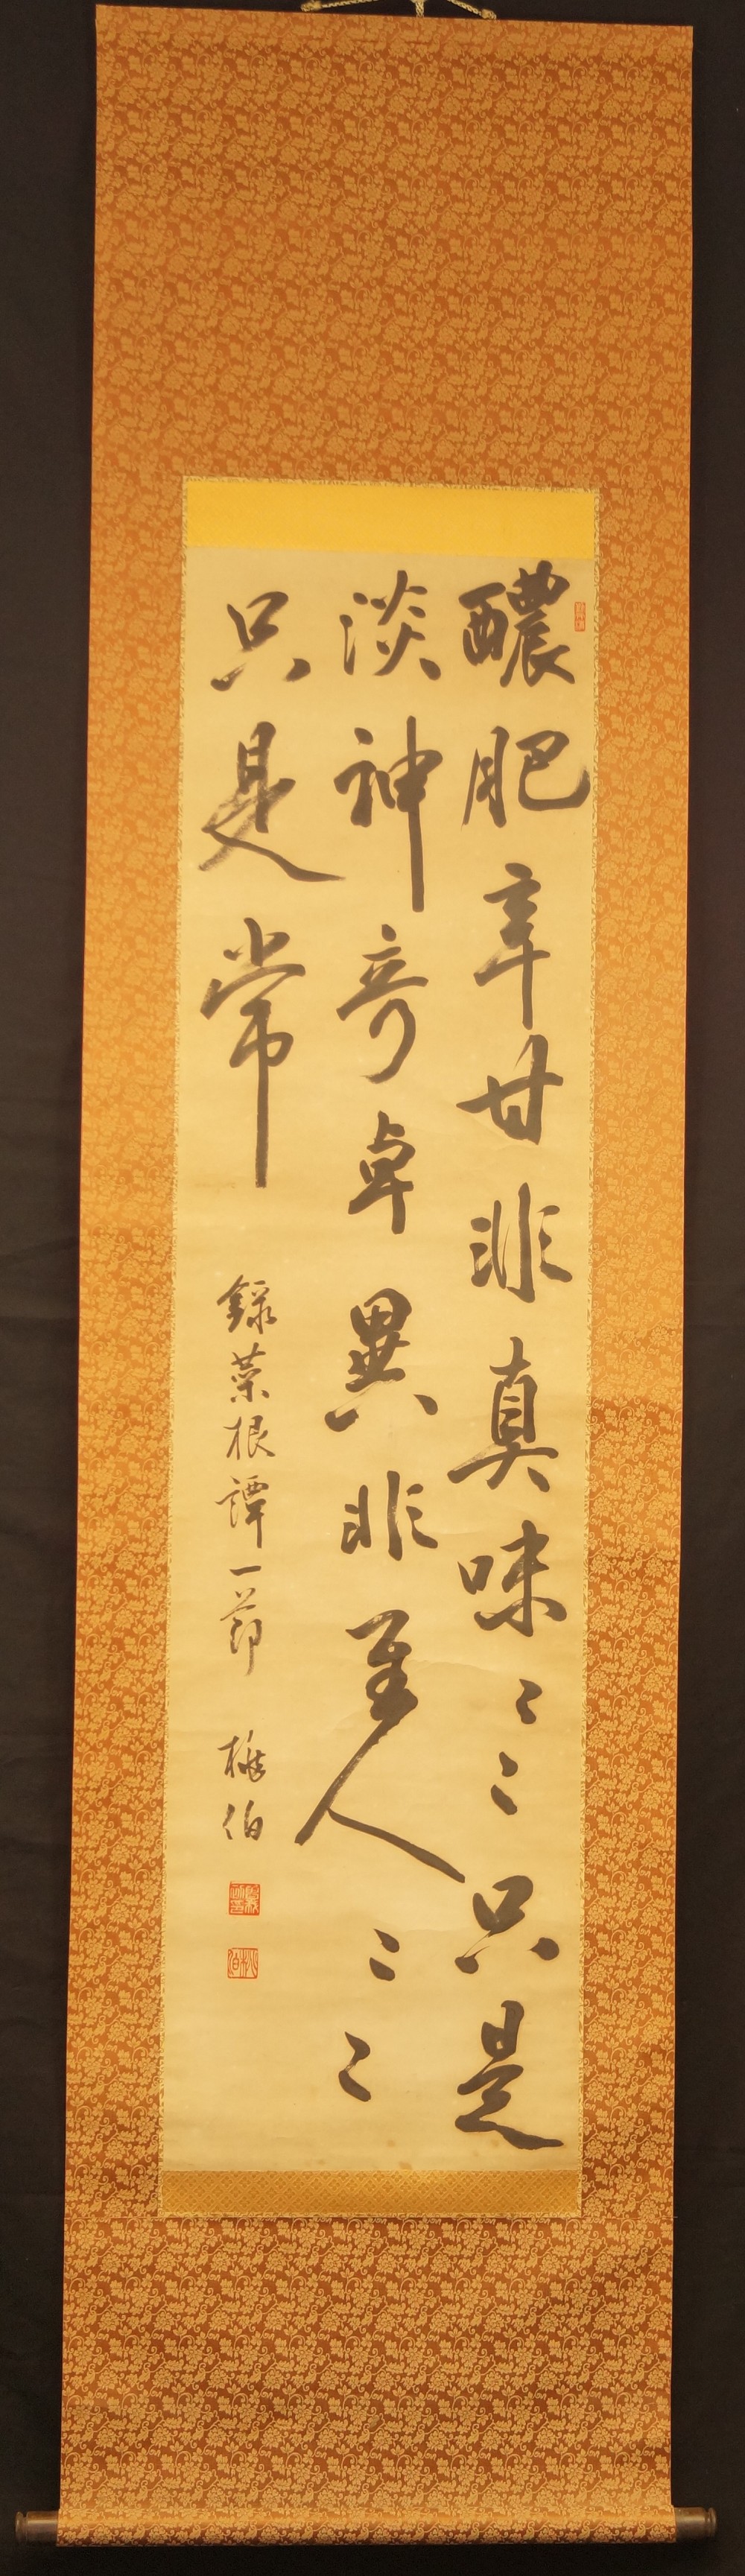 醲肥辛甘非真味〻〻只是
淡神奇卓異非至人〻〻
只是常
録菜根譚一節
伯